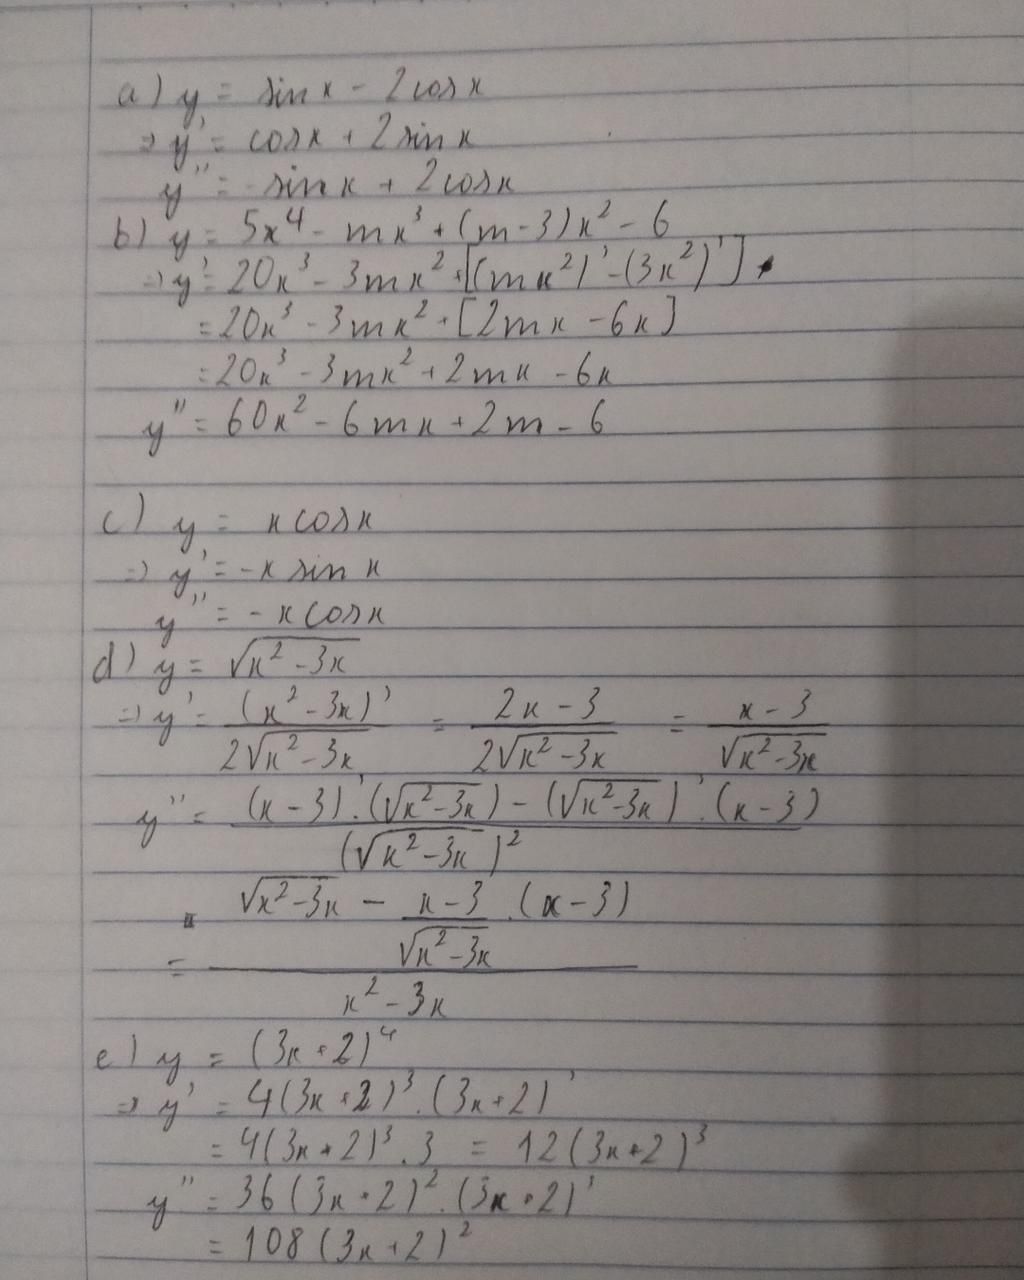 a) y = sin x - 2cos x
⇒ y' = cos x + 2 sin x
y'' = -sin x + 2cos x
b) y = 5x⁴ - mx³ + (m-3)x² - 6
⇒ y' = 20x³ - 3mx² + [(mx²)' - (3x²)']
= 20x³ - 3mx² + [2mx - 6x]
= 20x³ - 3mx² + 2mx - 6x
y'' = 60x² - 6mx + 2m - 6
c) y = x cos x
⇒ y' = -x sin x
y'' = -x cos x
d) y = √(x² - 3x)
⇒ y' = (x² - 3x)' / 2√(x² - 3x) = 2x - 3 / 2√(x² - 3x) = x - 3 / √(x² - 3x)
y'' = (x - 3)'.(√(x² - 3x)) - (√(x² - 3x))'.(x - 3) / (√(x² - 3x))²
= √(x² - 3x) - x - 3 / √(x² - 3x) .(x - 3) / x² - 3x
e) y = (3x + 2)⁴
⇒ y' = 4(3x + 2)³.(3x + 2)'
= 4(3x + 2)³.3 = 12(3x + 2)³
y'' = 36(3x + 2)².(3x + 2)'
= 108(3x + 2)²